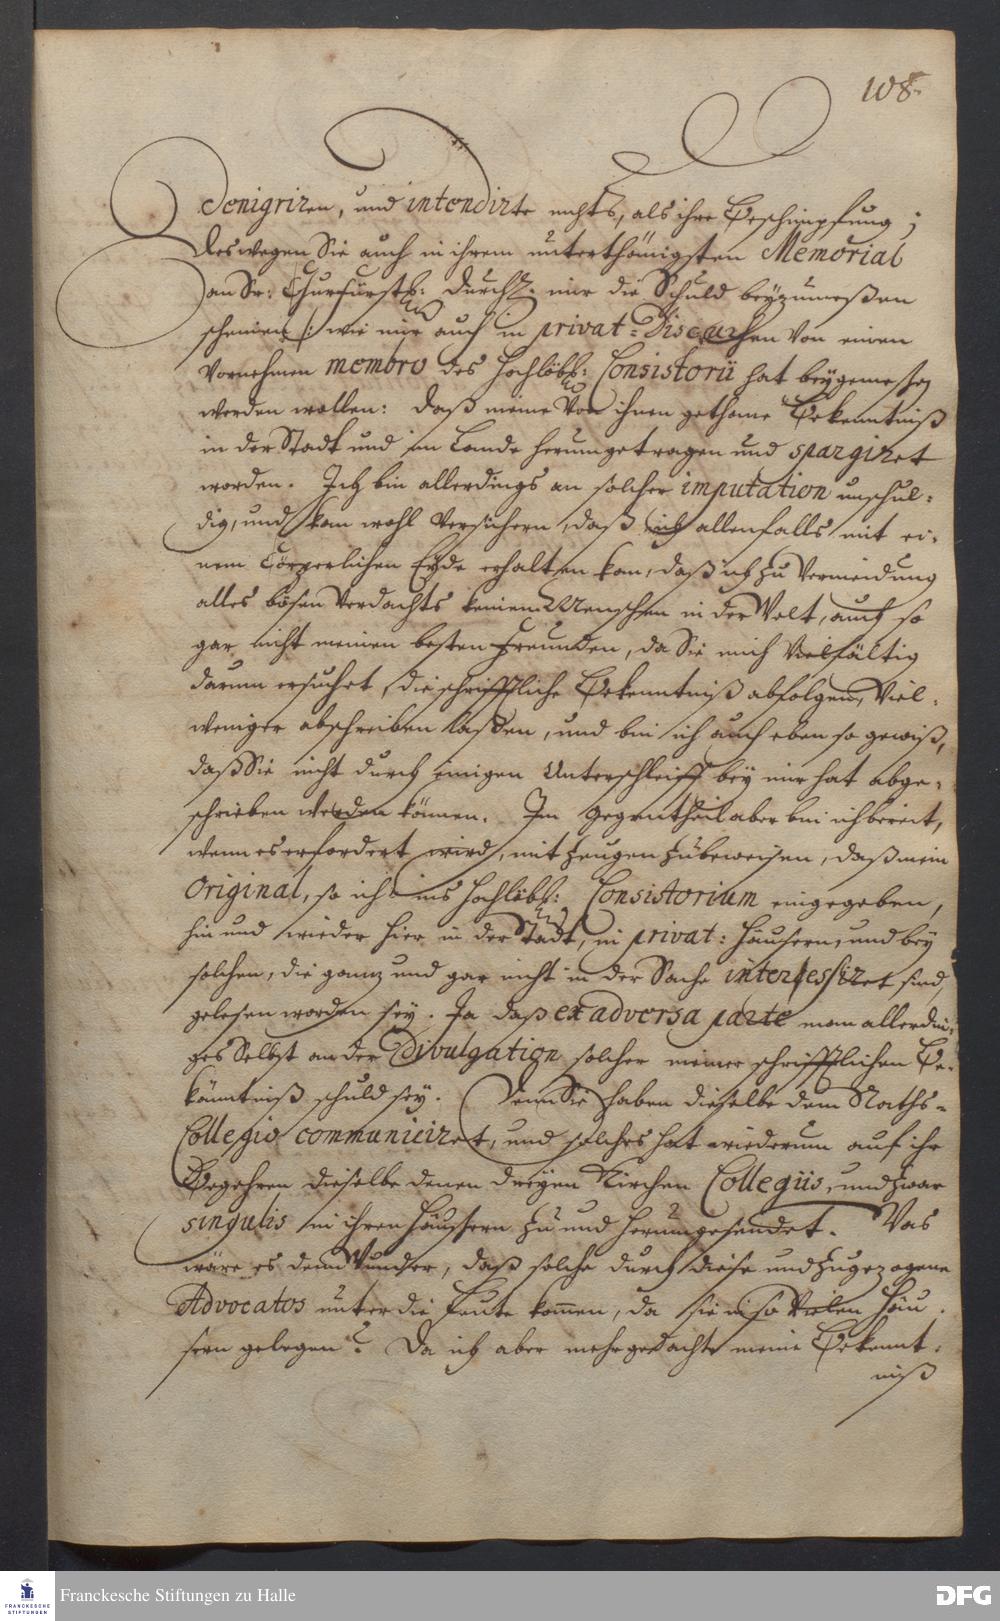 108.
denigriren, und intendirte nichts, als ihre Beschimpfung;
deswegen Sie auch in ihrem unterthänigsten Memorial
an Sr: Churfürstl: Durchl. mir die Schuld beyzumeßen
scheinen /: wie mir auch in privat-Discursen von einen
Vornehmen membro des Hochlöbl: Consistorii hat beygemeßen
werden wollen: daß meine von ihnen gethane Bekenntniß
in der Stadt und im Lande herumgetragen und spargiret
worden. Ich bin allerdings an solcher imputation unschul-
dig, und kan wohl versichern, daß ich allenfalls mit ei-
nem Cörperlichen Eyde erhalten kan, daß ich zu Vermeidung
alles bösen Verdachts keinem Menschen in der Welt, auch so
gar nicht meinen besten Freunden, da Sie mich Vielfältig
darum ersuchet, die schrifftliche Bekenntniß abfolgen, Viel-
weniger abschreiben laßen, und bin ich auch eben so gewiß,
daß Sie nicht durch einigen Unterschleiff bey mir hat abge-
schrieben werden können. Im Gegentheil aber bin ich bereit,
wenn es erfordert wird, mit Zeugen zu beweisen, daß mein
Original, so ich ins Hochlöbl: Consistorium eingegeben,
hin und wieder hier in der Stadt, in privat-Häusern, und bey
solchen, die ganz und gar nicht in der Sache interessiret sind,
gelesen worden sey. Ja daß ex adversa parte man allerdin-
ges Selbst an der Divulgation solcher meiner schrifftlichen Be-
käntniß schuld sey. Denn Sie haben dieselbe dem Raths-
Collegio communiciret, und solches hat wiederum auf ihr
Begehren dieselbe denen dreyen Kirchen Collegiis, und zwar
singulis in ihren Häusern zu und herumgesendet. Was
wäre es denn Wunder, daß solche durch diese und zugezogene
Advocatos unter die Leute kommen, da sie in so vielen Häu-
sern gelegen? Da ich aber mehrgedachte meine Bekennt-
niß
Franckesche Stiftungen zu Halle
FRANCKESCHE
STIFTUNGEN
DFG